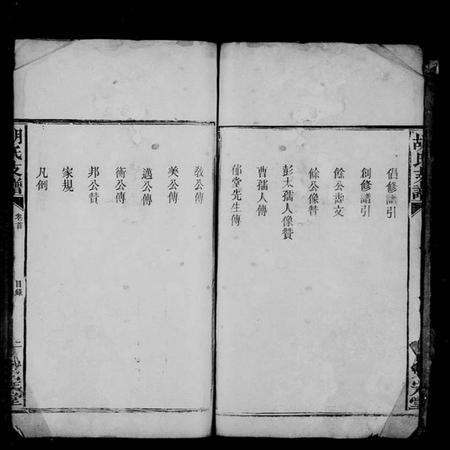 胡氏支譜
倡修譜引
創修譜引
餘公壽文
餘公像贊
彭太孺人像贊
曹孺人傳
先生傳
敎公傳
美公傳
邁公傳
術公傳
邦公贊
家規
凡例
胡氏支譜
卷首
目錄
二
堂